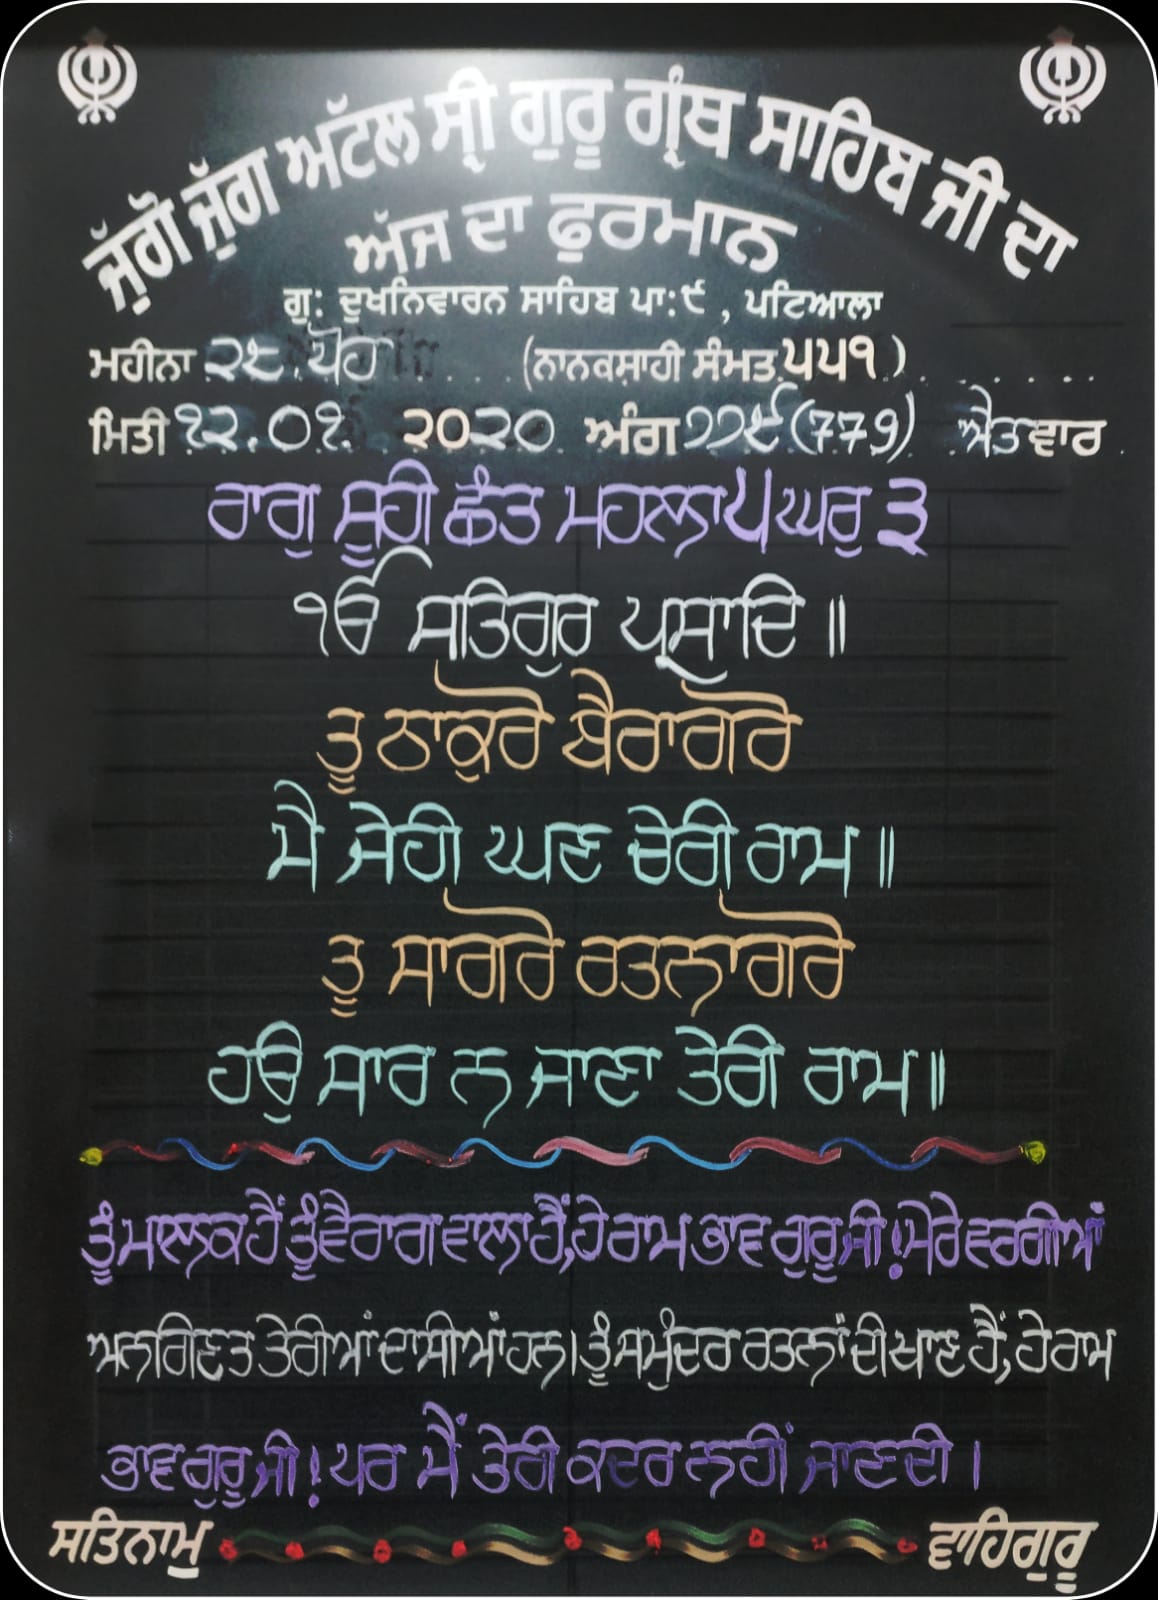 ਜੁੱਗੋ ਜੁੱਗ ਅਟੱਲ ਸ੍ਰੀ ਗੁਰੂ ਗ੍ਰੰਥ ਸਾਹਿਬ ਜੀ ਦਾ
ਅੱਜ ਦਾ ਫੁਰਮਾਨ
ਗੁ: ਦੁਖਨਿਵਾਰਨ ਸਾਹਿਬ ਪਾ:੯ , ਪਟਿਆਲਾ
ਮਹੀਨਾ ੨੮ ਪੋਹ (ਨਾਨਕਸ਼ਾਹੀ ਸੰਮਤ ੫੫੧)
ਮਿਤੀ ੧੨.੦੧. ੨੦੨੦ ਅੰਗ ੭੭੯ (779) ਐਤਵਾਰ
ਰਾਗੁ ਸੂਹੀ ਛੰਤ ਮਹਲਾ ੫ ਘਰੁ ੩
ੴ ਸਤਿਗੁਰ ਪ੍ਰਸਾਦਿ ॥
ਤੂ ਠਾਕੁਰੋ ਬੈਰਾਗਰੋ
ਮੈ ਜੇਹੀ ਘਣ ਚੇਰੀ ਰਾਮ ॥
ਤੂ ਸਾਗਰੋ ਰਤਨਾਗਰੋ
ਹਉ ਸਾਰ ਨ ਜਾਣਾ ਤੇਰੀ ਰਾਮ ॥
ਤੂੰ ਮਾਲਕ ਹੈਂ ਤੂੰ ਵੈਰਾਗ ਵਾਲਾ ਹੈਂ, ਹੇ ਰਾਮ ਭਾਵ ਗੁਰੂ ਜੀ! ਮੇਰੇ ਵਰਗੀਆਂ
ਅਨਗਿਣਤ ਤੇਰੀਆਂ ਦਾਸੀਆਂ ਹਨ। ਤੂੰ ਸਮੁੰਦਰ ਰਤਨਾਂ ਦੀ ਖਾਣ ਹੈਂ, ਹੇ ਰਾਮ
ਭਾਵ ਗੁਰੂ ਜੀ! ਪਰ ਮੈਂ ਤੇਰੀ ਕਦਰ ਨਹੀਂ ਜਾਣਦੀ ।
ਸਤਿਨਾਮੁ ਵਾਹਿਗੁਰੂ